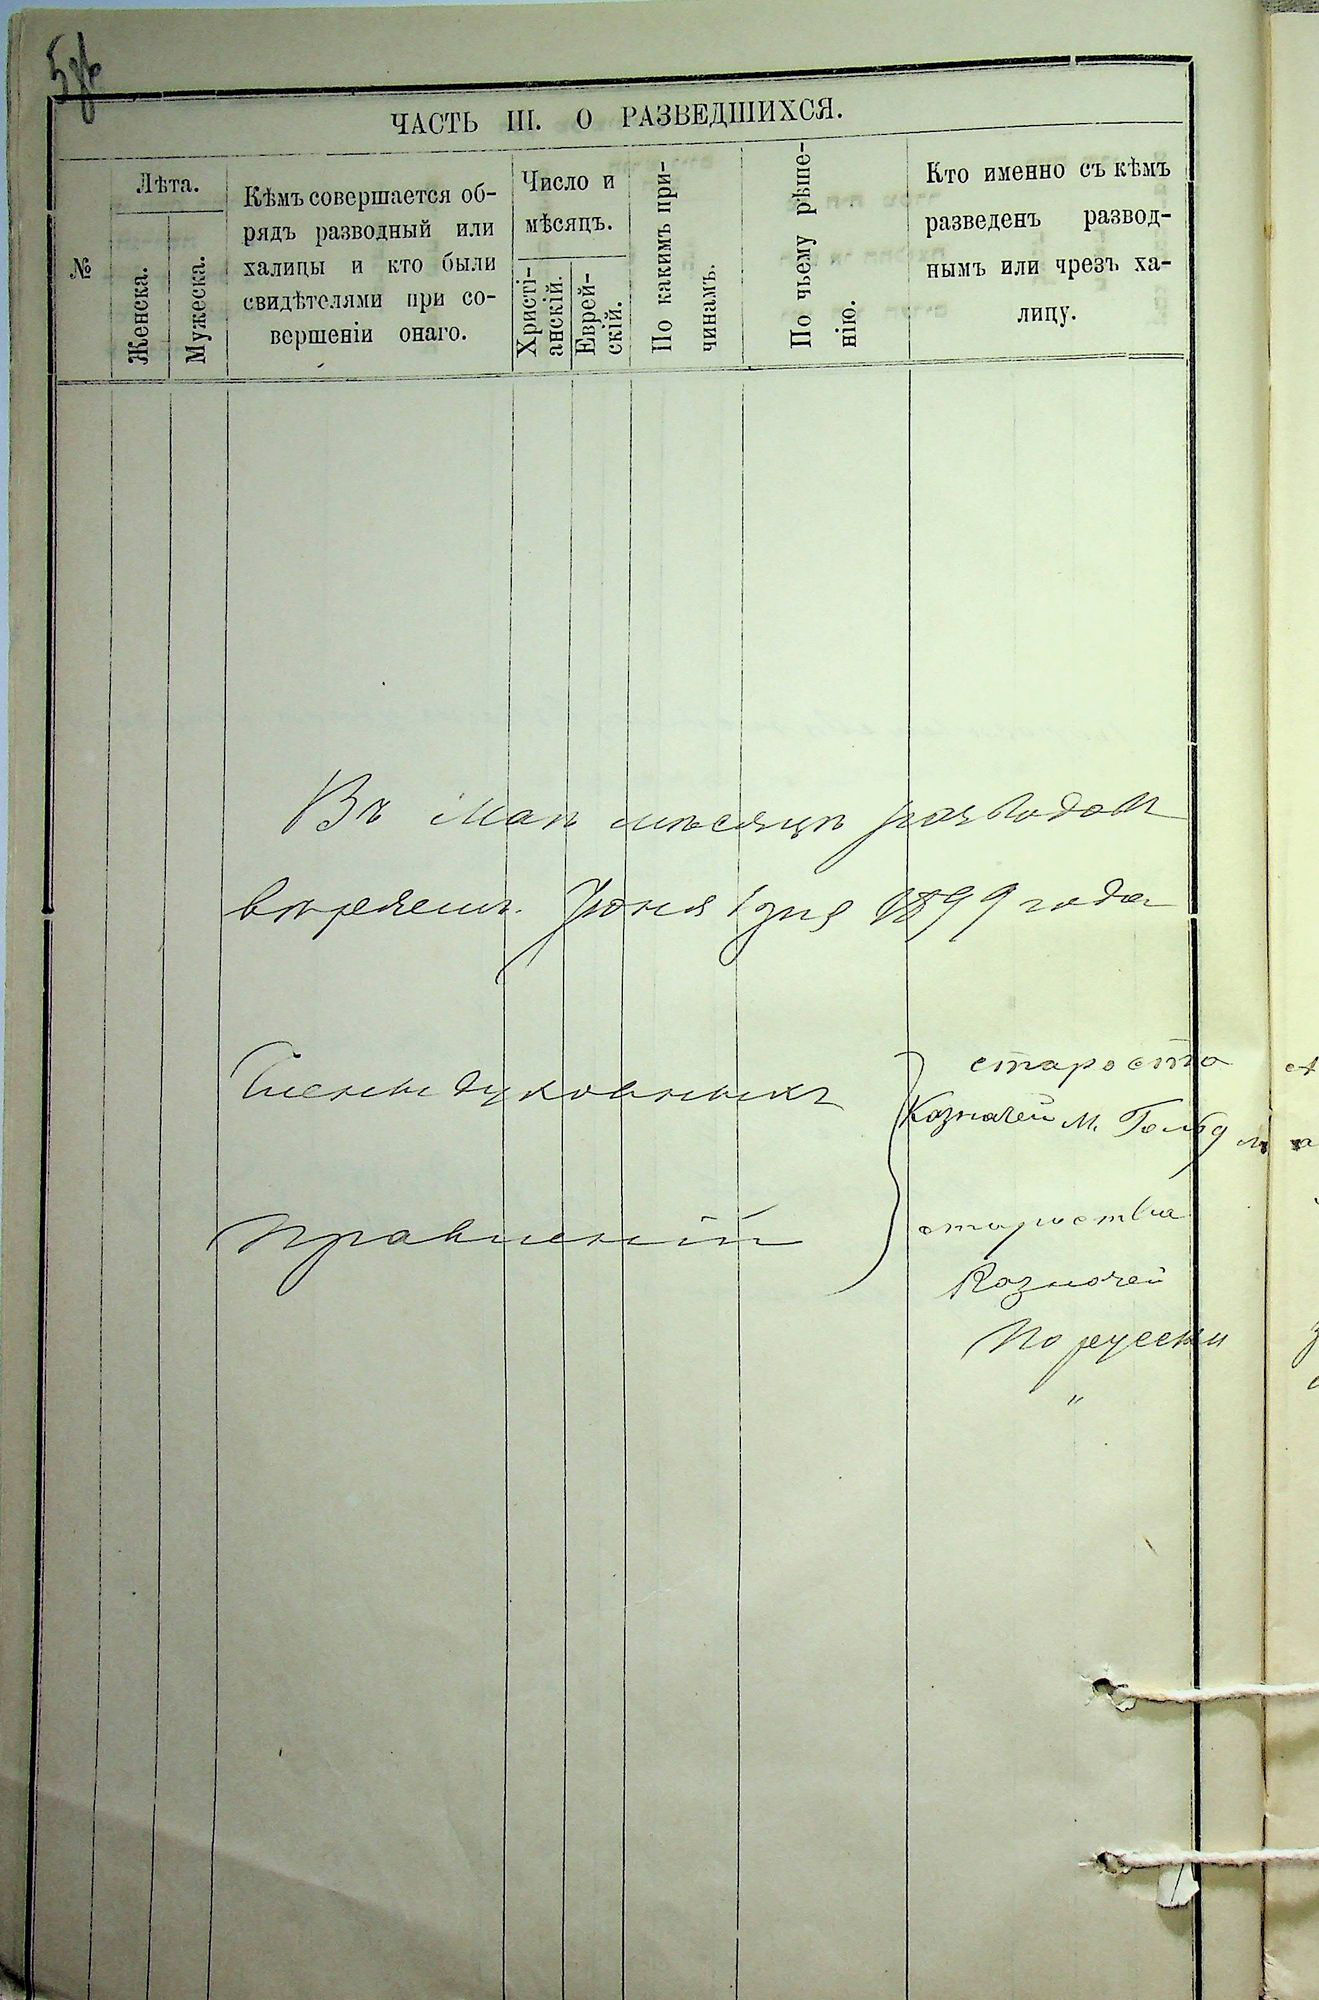 ЧАСТЬ III. О РАЗВЕДШИХСЯ.
№
Лѣта.
Женска.
Мужеска.
Кѣмъ совершается об-
рядъ разводный или
халицы и кто были
свидѣтелями при со-
вершеніи онаго.
Число и
мѣсяцъ.
Христі-
анскій.
Еврей-
скій.
По какимъ при-
чинамъ.
По чьему рѣше-
нію.
Кто именно съ кѣмъ
разведенъ развод-
нымъ или чрезъ ха-
лицу.
Въ Маѣ мѣсяцѣ разводовъ
Іюня 1 дня 1899 года
Члены духовныхъ
правленій
староста
Казначей М.
староства
Казначей
по русски
"